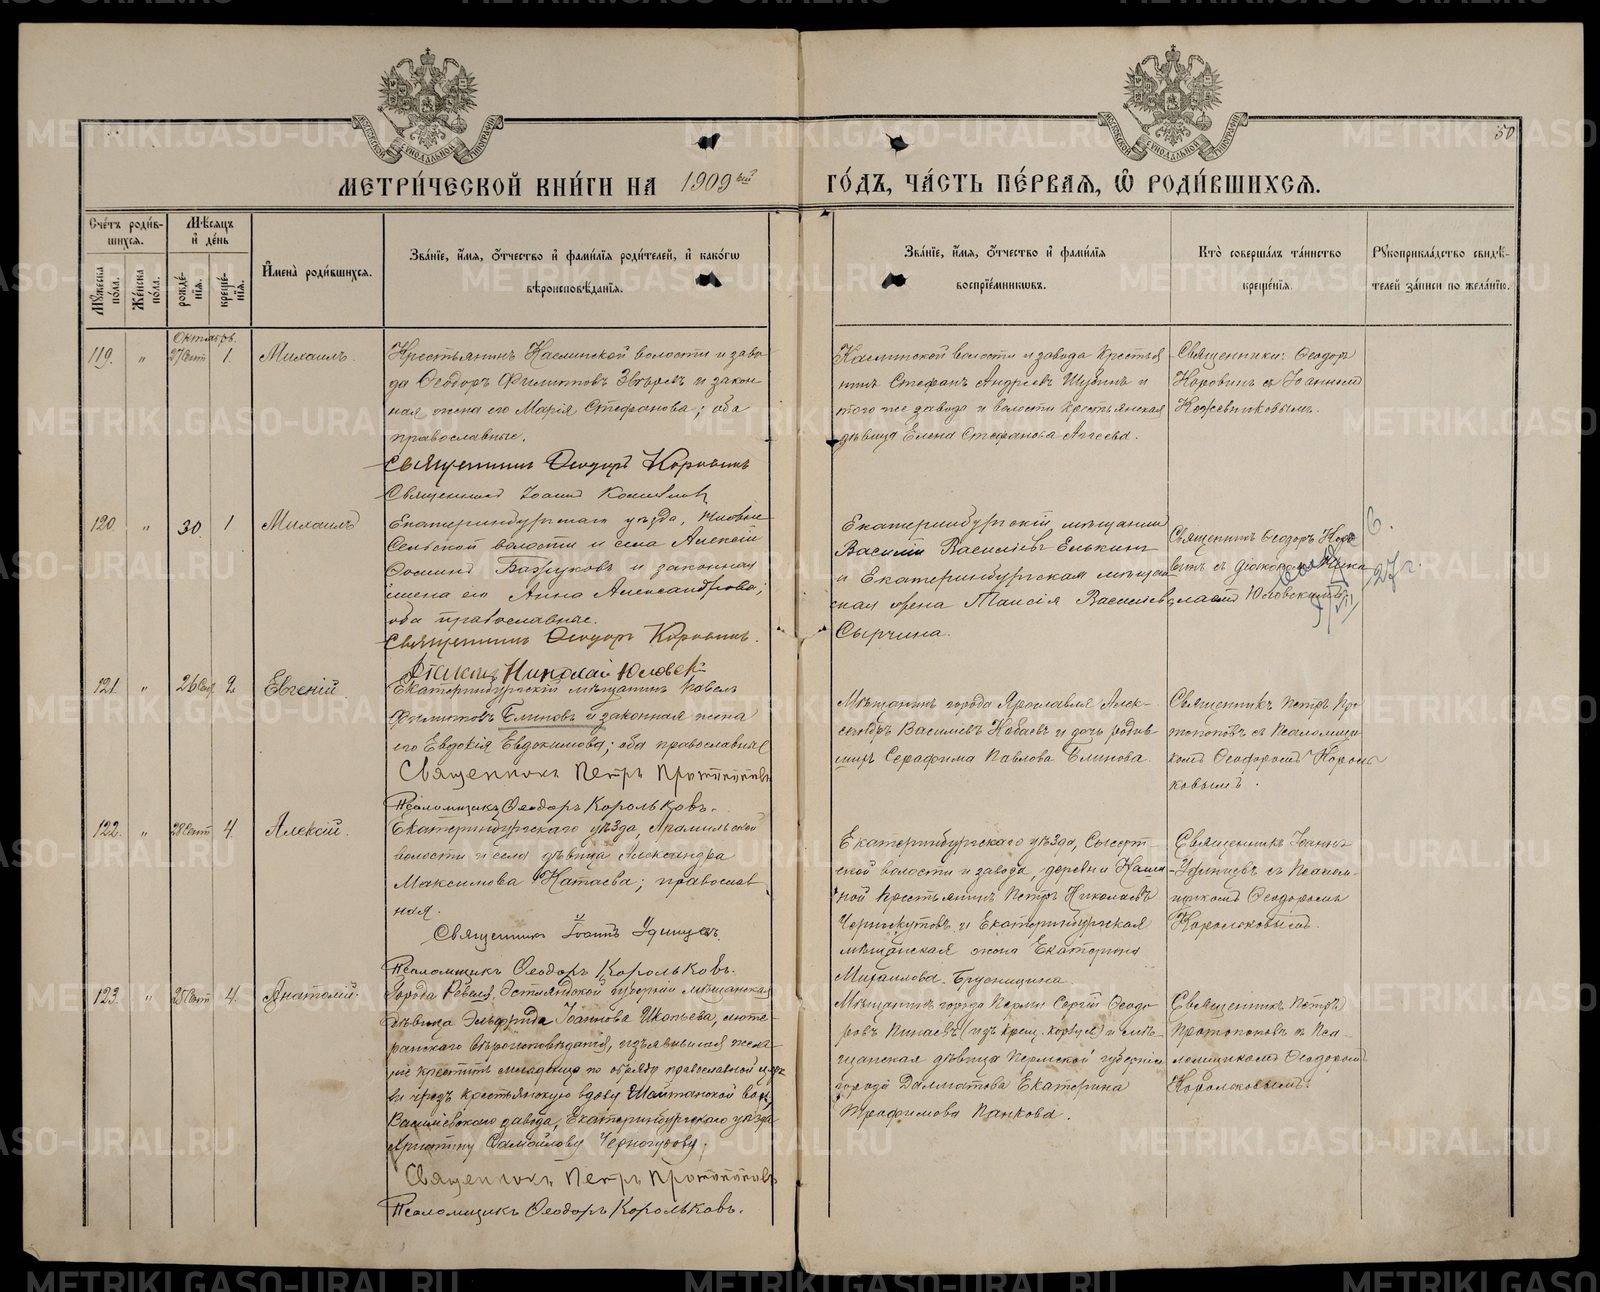 50
МЕТРИ́ЧЕСКОЙ КНИ́ГИ НА 1909ый ГО́ДЪ, ЧА́СТЬ ПЕ́РВАѦ, Ѡ҆ РОДИ́ВШИХСѦ.
Сче́тъ роди́в-
шихсѧ.
Мѣ́сѧцъ
и҆ де́нь
И҆мена̀ роди́вшихсѧ.
Зва́нїе, и҆́мѧ, ѻ҆́тчество и҆ фами́лїѧ роди́телей, и҆ како́гѡ
вѣроисповѣ́данїѧ.
Зва́нїе, и҆́мѧ, ѻ҆́тчество и҆ фами́лїѧ
воспрїе́мникѡвъ.
Кто̀ соверша́лъ та́инство
креще́нїѧ.
Рꙋкоприкла́дство свидѣ́-
телей за́писи по жела́нїю.
Мꙋ́жеска
по́ла.
Же́нска
по́ла.
рожде́-
нїѧ.
креще́-
нїѧ.
Октябрь.
119. " 27 Сент 1. Михаилъ.
Крестьянинъ Каслинской волости и заво-
да Ѳеодоръ Филипповъ Звѣревъ и закон-
ная жена его Марія Стефанова; оба
православные.
Священникъ Ѳеодоръ Коровинъ
Священникъ Іоаннъ
Каслинской волости и завода крестья
нинъ Стефанъ Андреевъ Шубинъ и
того же завода и волости крестьянская
дѣвица Елена Стефанова Агѣева.
Священники: Ѳеодоръ
Коровинъ съ Іоанномъ
Кожевниковымъ.
120. " 30. 1 Михаилъ
Екатеринбургскаго уѣзда,
Сельской волости и села Алексѣй
Бажуковъ и законная
жена его Анна Александрова;
оба православные.
Священникъ Ѳеодоръ Коровинъ.
Діаконъ Николай Юловск
Екатеринбургскій мѣщанинъ
Василій Васильевъ Елькинъ
и Екатеринбургская мѣщан
ская жена Таисія Васильева
Сырчина.
Священникъ Ѳеодоръ Коро
винъ съ діакономъ Нико
лаемъ Юловскимъ.
27 г.
121. " 26 Сен. 2 Евгеній
Екатеринбургскій мѣщанинъ Павелъ
Филипповъ Блиновъ и законная жена
его Евдокія Евдокимова; оба православные
Священникъ Петръ Протопоповъ
Псаломщикъ Ѳеодоръ Корольковъ.
Мѣщанинъ города Ярославля Алек-
сандръ Васильевъ Кабаевъ и дочь родив-
шихъ Серафима Павлова Блинова.
Священникъ Петръ Про
топоповъ съ Псаломщи
комъ Ѳеодоромъ Король
ковымъ.
122. " 28 Сент 4. Алексій.
Екатеринбургскаго уѣзда, Арамильской
волости и села дѣвица Александра
Максимова Катаева; православ
ная.
Священникъ Іоаннъ Удинцевъ.
Псаломщикъ Ѳеодоръ Корольковъ.
Екатеринбургскаго уѣзда, Сысерт-
ской волости и завода, деревни
ной крестьянинъ Петръ Николаевъ
Черноскутовъ и Екатеринбургская
мѣщанская жена Екатерина
Михаилова Брусницина.
Священникъ Іоаннъ
Удинцевъ съ Псалом-
щикомъ Ѳеодоромъ
Корольковымъ.
123. " 25 Сент 4. Анатолій.
Города Ревеля, Эстляндской губерніи мѣщанская
дѣвица Эльфрида Іоаннова, люте-
ранскаго вѣроисповѣданія, изъявившая жела-
ніе крестить младенца по обряду православной церк
ви чрезъ крестьянскую вдову Шайтанской вол.,
Васильевскаго завода, Екатеринбургскаго уѣзда
Христину Самойлову Черногубову.
Священникъ Петръ Протопоповъ
Псаломщикъ Ѳеодоръ Корольковъ.
Мѣщанинъ города Перми Сергій Ѳеодо
ровъ Пинаевъ и мѣ-
щанская дѣвица Пермской губерніи
города Далматова Екатерина
Трофимова Панкова.
Священникъ Петръ
Протопоповъ съ Пса-
ломщикомъ Ѳеодоромъ
Корольковымъ.
METRIKI.GASO-URAL.RU